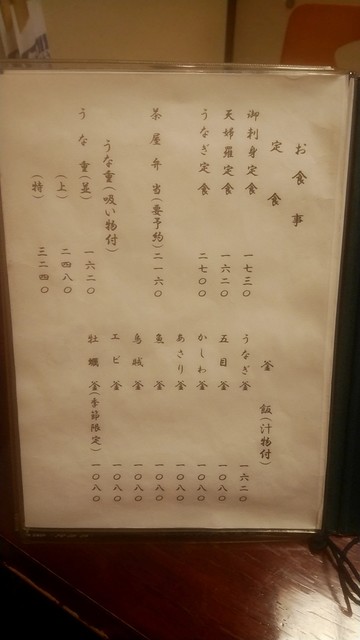 お食事
定食
御刺身定食 一七三〇
天婦羅定食 一六二〇
うなぎ定食 二七〇〇
茶屋弁当(要予約) 二一六〇
うな重(吸い物付)
うな重(並) 一六二〇
(上) 二四八〇
(特) 三二四〇
釜飯(汁物付)
うなぎ釜 一六二〇
五目釜 一〇八〇
かしわ釜 一〇八〇
あさり釜 一〇八〇
釜 一〇八〇
鳥賊釜 一〇八〇
エビ釜 一〇八〇
牡蠣釜(季節限定) 一〇八〇